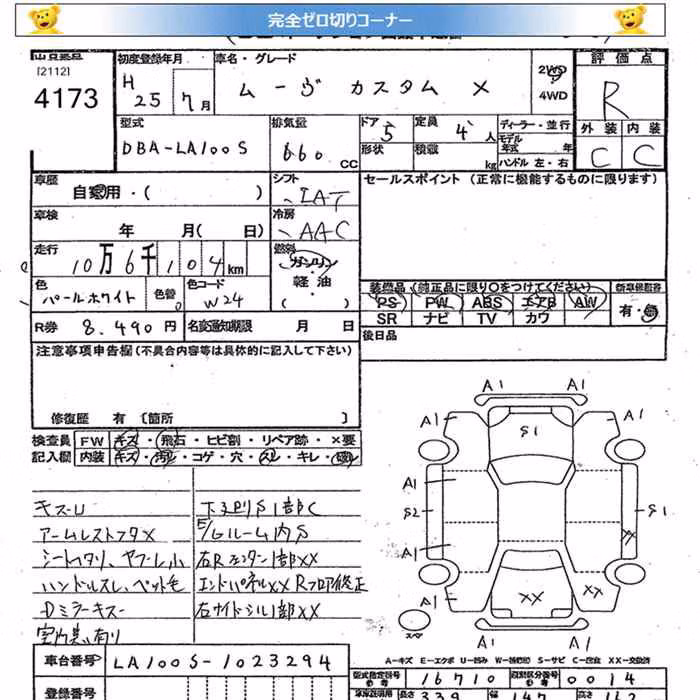 完全ゼロ切りコーナー
[2112]
4173
初度登録年月
H 25年 7月
車名・グレード
ムーヴ カスタム X
2WD
4WD
評価点
R
型式
DBA-LA100S
排気量
660 CC
ドア 5
形状
定員 4人
積載 kg
ディーラー・並行
モデル年式 年
ハンドル 左・右
外装 内装
C C
車歴
自家用・( )
シフト
IAT
セールスポイント (正常に機能するものに限ります)
車検
年 月( 日)
冷房
AAC
走行
10万6千104km
燃料
ガソリン
軽油
( )
色
パールホワイト
色替
色コード
W24
装備品 (純正品に限り○をつけてください)
PS PW ABS エアB AW
SR ナビ TV カワ
有・無
R券 8.490円
名変通知期限 月 日
後日品
注意事項申告欄 (不具合内容等は具体的に記入して下さい)
修復歴 有 [箇所 ]
検査員
記入欄
FW キズ・飛石・ヒビ割・リペア跡・×要
内装 キズ・汚れ・コゲ・穴・スレ・キレ・破れ
キズ-U
アームレストフタX
シートヘタリ、ヤブーレ,小
ハンドルスレ、ペット毛
Dミラーキズ-
室内臭い有り
下廻りS1部C
E/Gルーム内S
右Rフェンダー1部XX
エンドパネルXX Rフロア修正
右サイドシル1部XX
A1 A1
A1 A1
S1
A1
S2 S1
A1 XX
XX XX
A1
A1 A1
スペア
A-キズ E-エクボ U-凹み W-補修跡 S-サビ C-腐食 XX-交換済
車台番号 LA100S-1023294
登録番号
型式指定番号 参考 16710
類別区分番号 参考 0014
長さ 339 幅 147 高さ